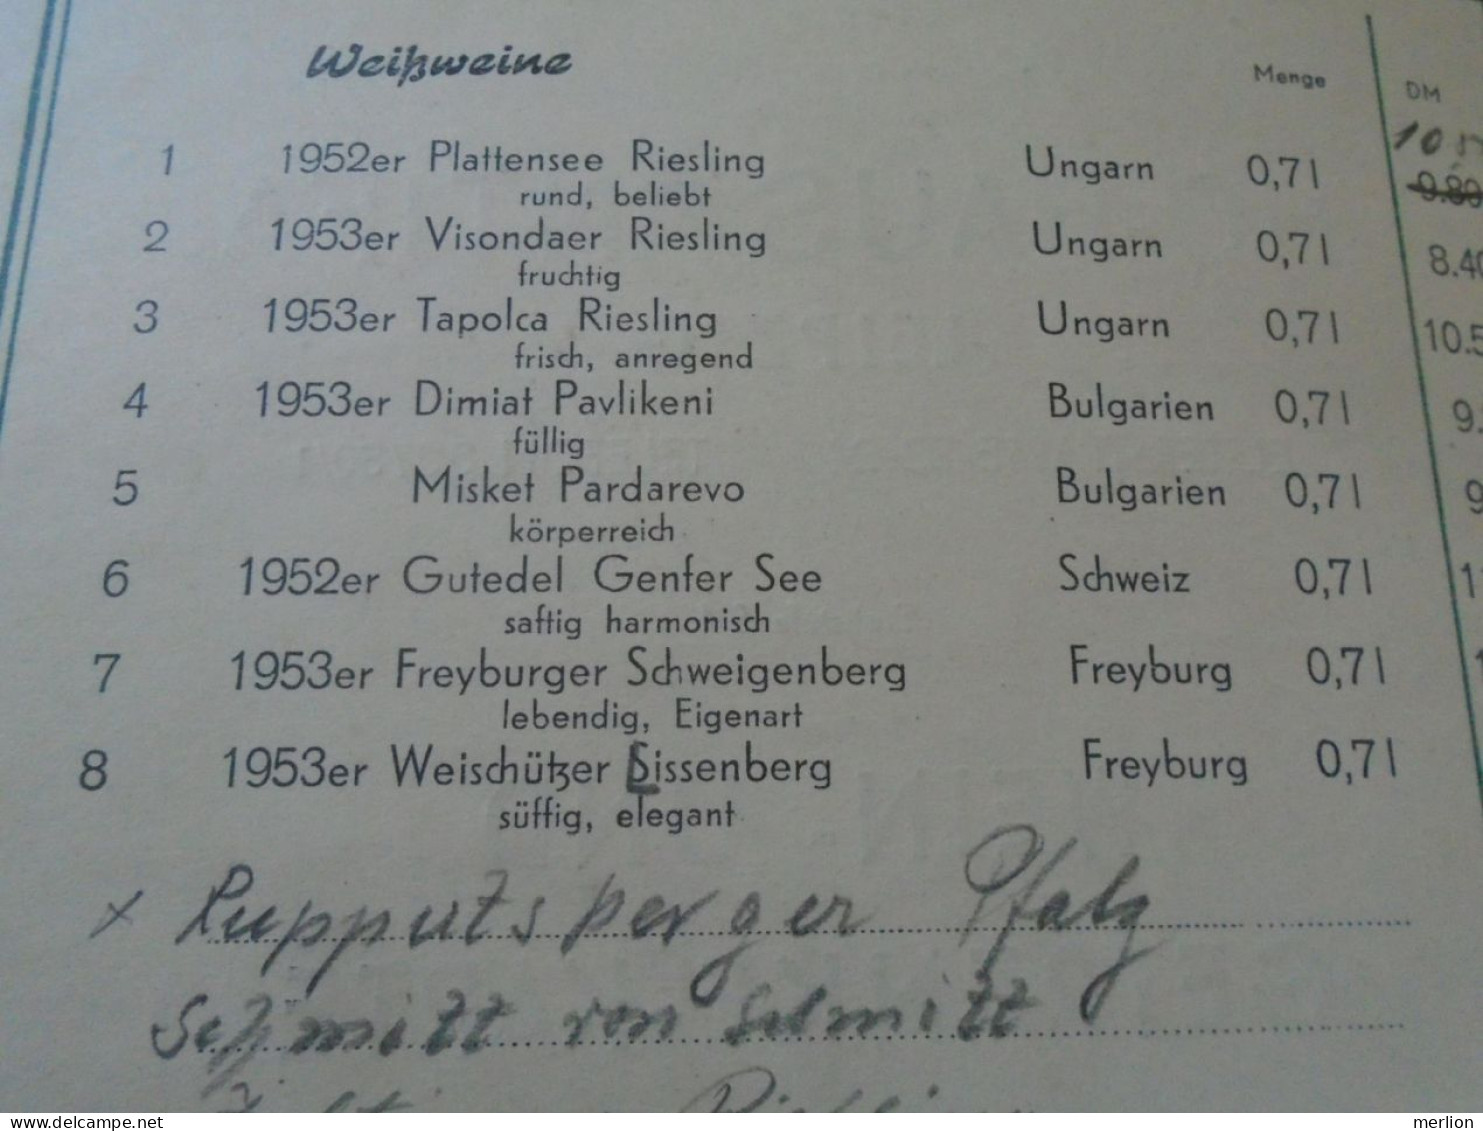 Weißweine
Menge
DM
10
1 1952er Plattensee Riesling Ungarn 0,7 l 9.80
rund, beliebt
2 1953er Visondaer Riesling Ungarn 0,7 l 8.40
fruchtig
3 1953er Tapolca Riesling Ungarn 0,7 l 10.5
frisch, anregend
4 1953er Dimiat Pavlikeni Bulgarien 0,7 l 9.
füllig
5 Misket Pardarevo Bulgarien 0,7 l 9
körperreich
6 1952er Gutedel Genfer See Schweiz 0,7 l 1
saftig harmonisch
7 1953er Freyburger Schweigenberg Freyburg 0,7 l 1
lebendig, Eigenart
8 1953er Weischützer Lissenberg Freyburg 0,7 l
süffig, elegant
x Ruppertsberger Pfalz
Schmitt von Schmitt
merlion